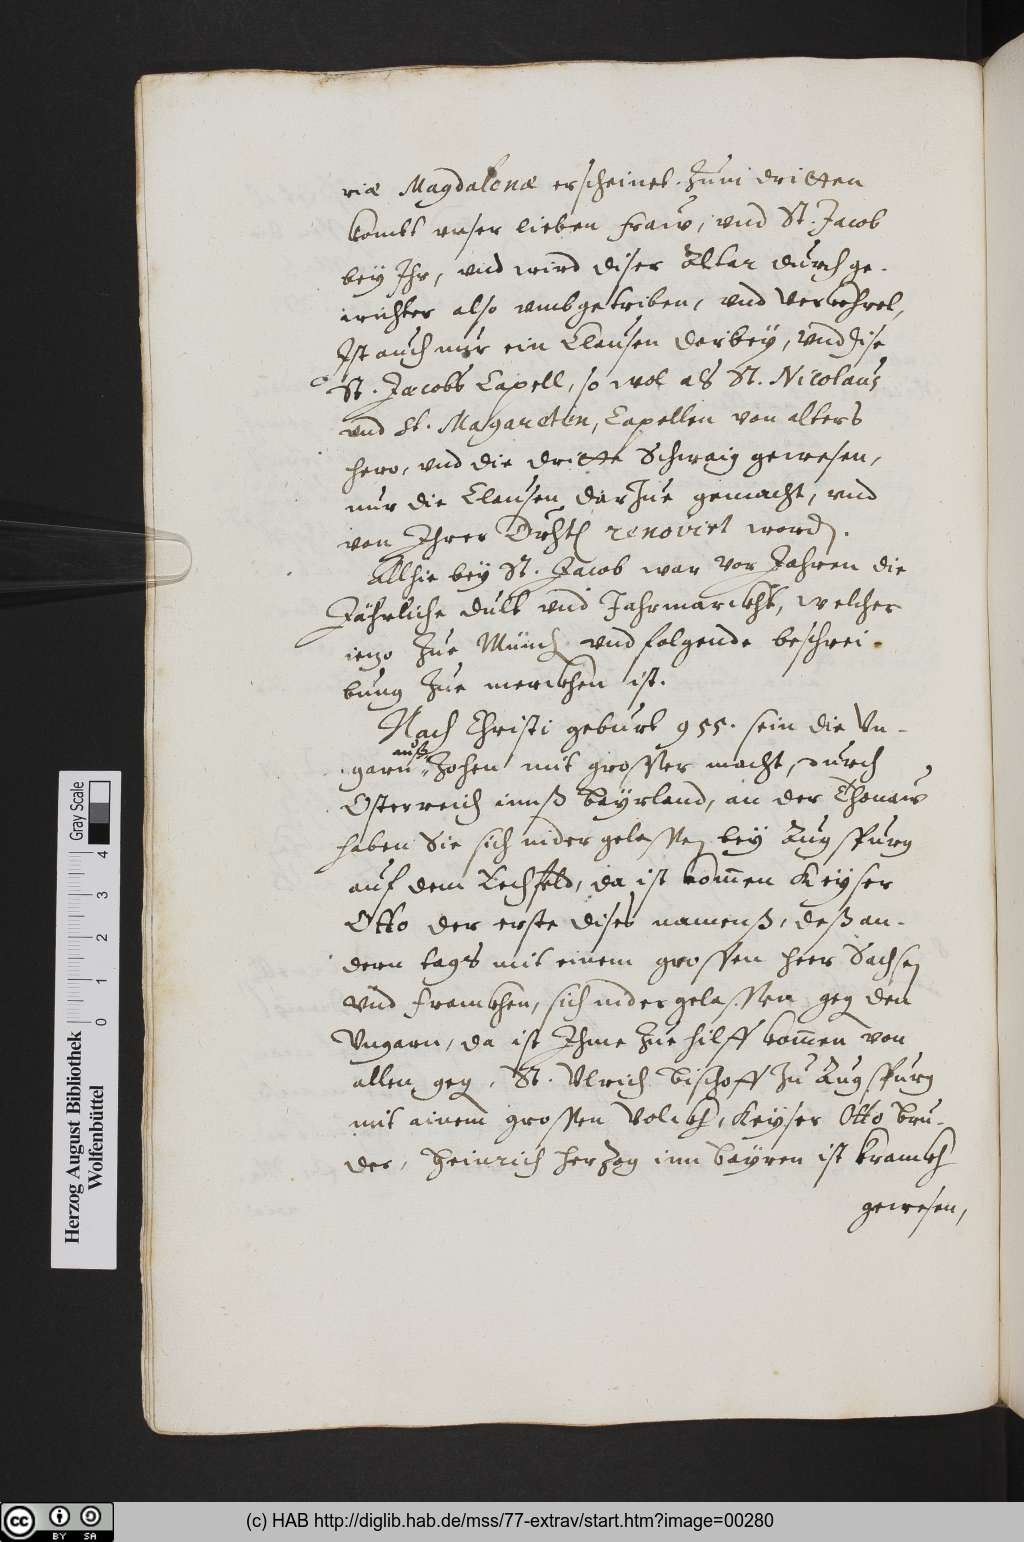 riæ Magdalenæ erscheinet. Zum dritten
kombt unser lieben fraw, und St. Jacob
bey Ihr, und wird diser Altar durch ge-
wichter also umbgetriben, und verkehret,
Ist auch nur ein Clausen darbey, und dise
St. Jacobs Capell, so wol als St. Nicolaus
und St. Magareten, Capellen von alters
hero, und die dritte Schwaig gewesen,
nur die Clausen darzue gemacht, und
von Ihrer Drhtl renoviet word.
Allhie bey St. Jacob war vor Jahren die
Jährliche dult und Jahrmarckht, welcher
iezo zue Münch. und folgende beschrei-
bung zue merckhen ist.
Nach Christi geburt 955. sein die Un-
auß
garn zohen mit grosser macht, durch
Osterreich innß bayrland, an der Thonaw
haben Sie sich nider gelassen bey Augspurg
auf dem Lechfeld, da ist kom̄en Keyser
Otto der erste dises namenß, deß an-
dern tags mit einem grossen heer Sachsen
und franckhen, sich nidergelassen geg den
Ungarn, da ist Ihme zue hilff kom̄en von
allen geg, St. Ulrich bischoff zu Augspurg
mit ainem grossen Volckh, Keyser Otto bru-
der, Heinrich herzog inn bayren ist kranckh
gewesen,
Herzog August Bibliothek
Wolfenbüttel
0 1 2 3 4
Gray Scale
cc BY SA
(c) HAB http://diglib.hab.de/mss/77-extrav/start.htm?image=00280